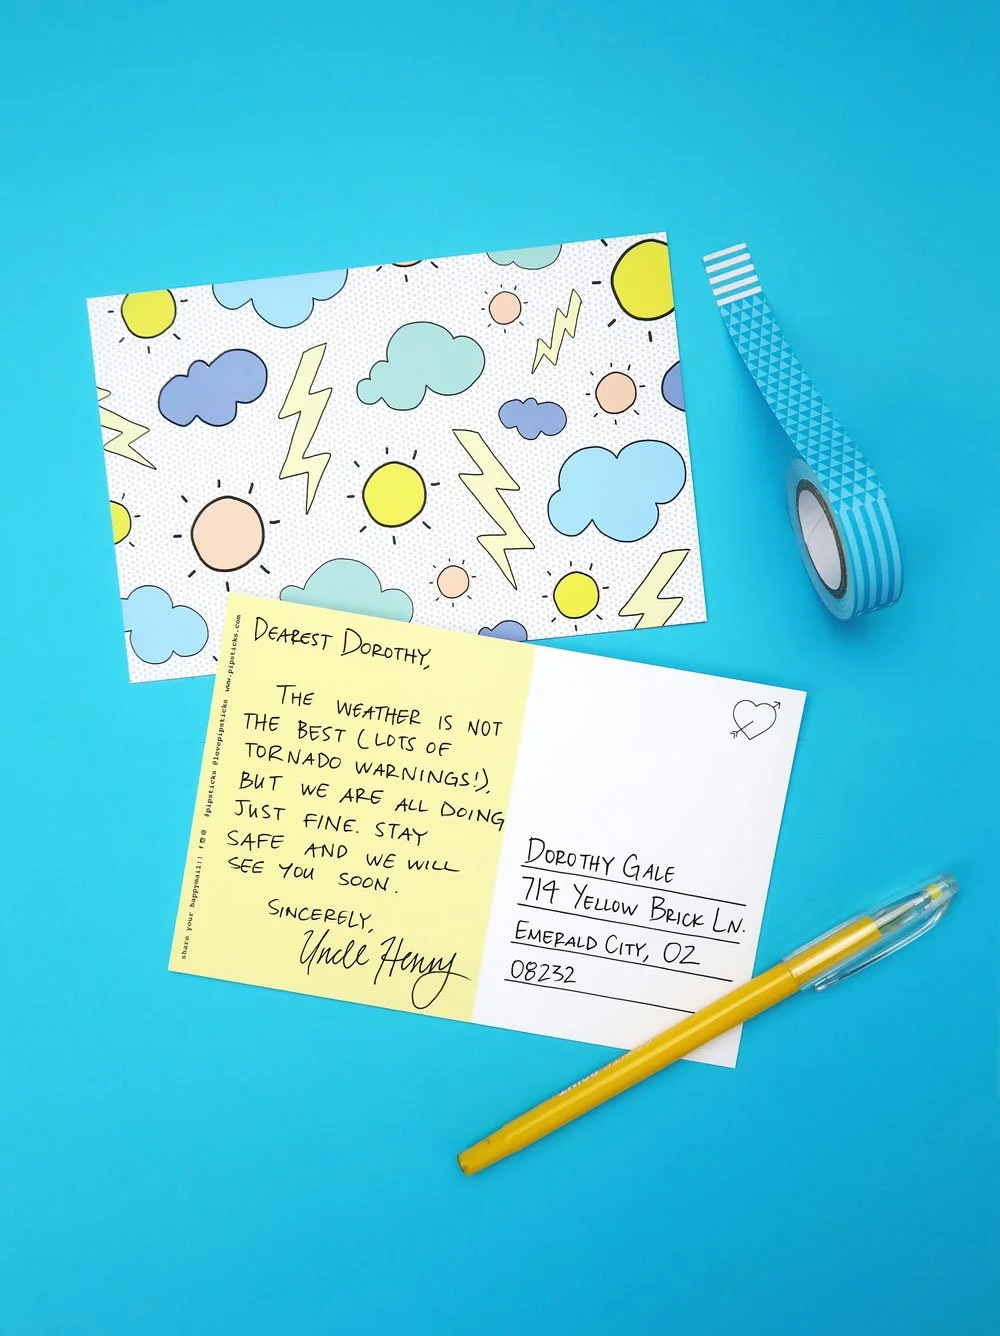 DEAREST DOROTHY,
THE WEATHER IS NOT
THE BEST (LOTS OF
TORNADO WARNINGS!),
BUT WE ARE ALL DOING
JUST FINE. STAY
SAFE AND WE WILL
SEE YOU SOON.
SINCERELY,
Uncle Henry
share your happymail!! #pipsticks @lovepipsticks www.pipsticks.com
DOROTHY GALE
714 YELLOW BRICK LN.
EMERALD CITY, OZ
08232